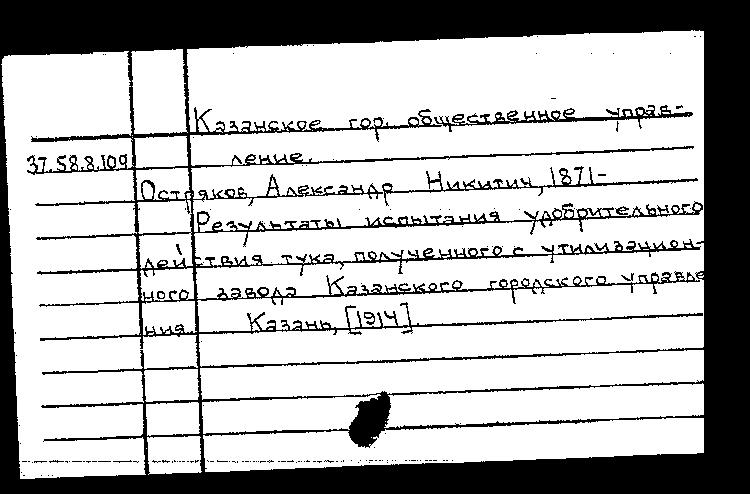 Казанское гор. общественное управ-
37.58.8.109 ление.
Остряков, Александр Никитич, 1871-
Результаты испытания удобрительного
действия тука, полученного с утилизацион-
ного завода Казанского городского управле
ния. Казань, [1914]